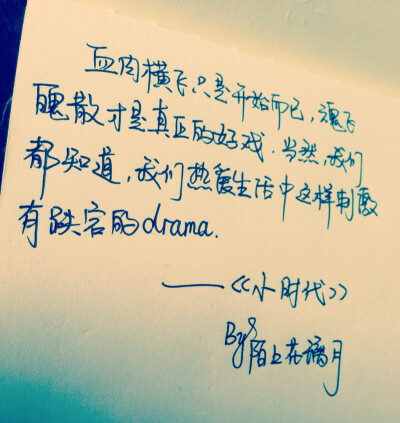 血肉横飞只是开始而已，魂飞
魄散才是真正的好戏．当然，我们
都知道，我们热爱生活中这样刺激
有跌宕的drama.
——《小时代》
By：陌上花璃月